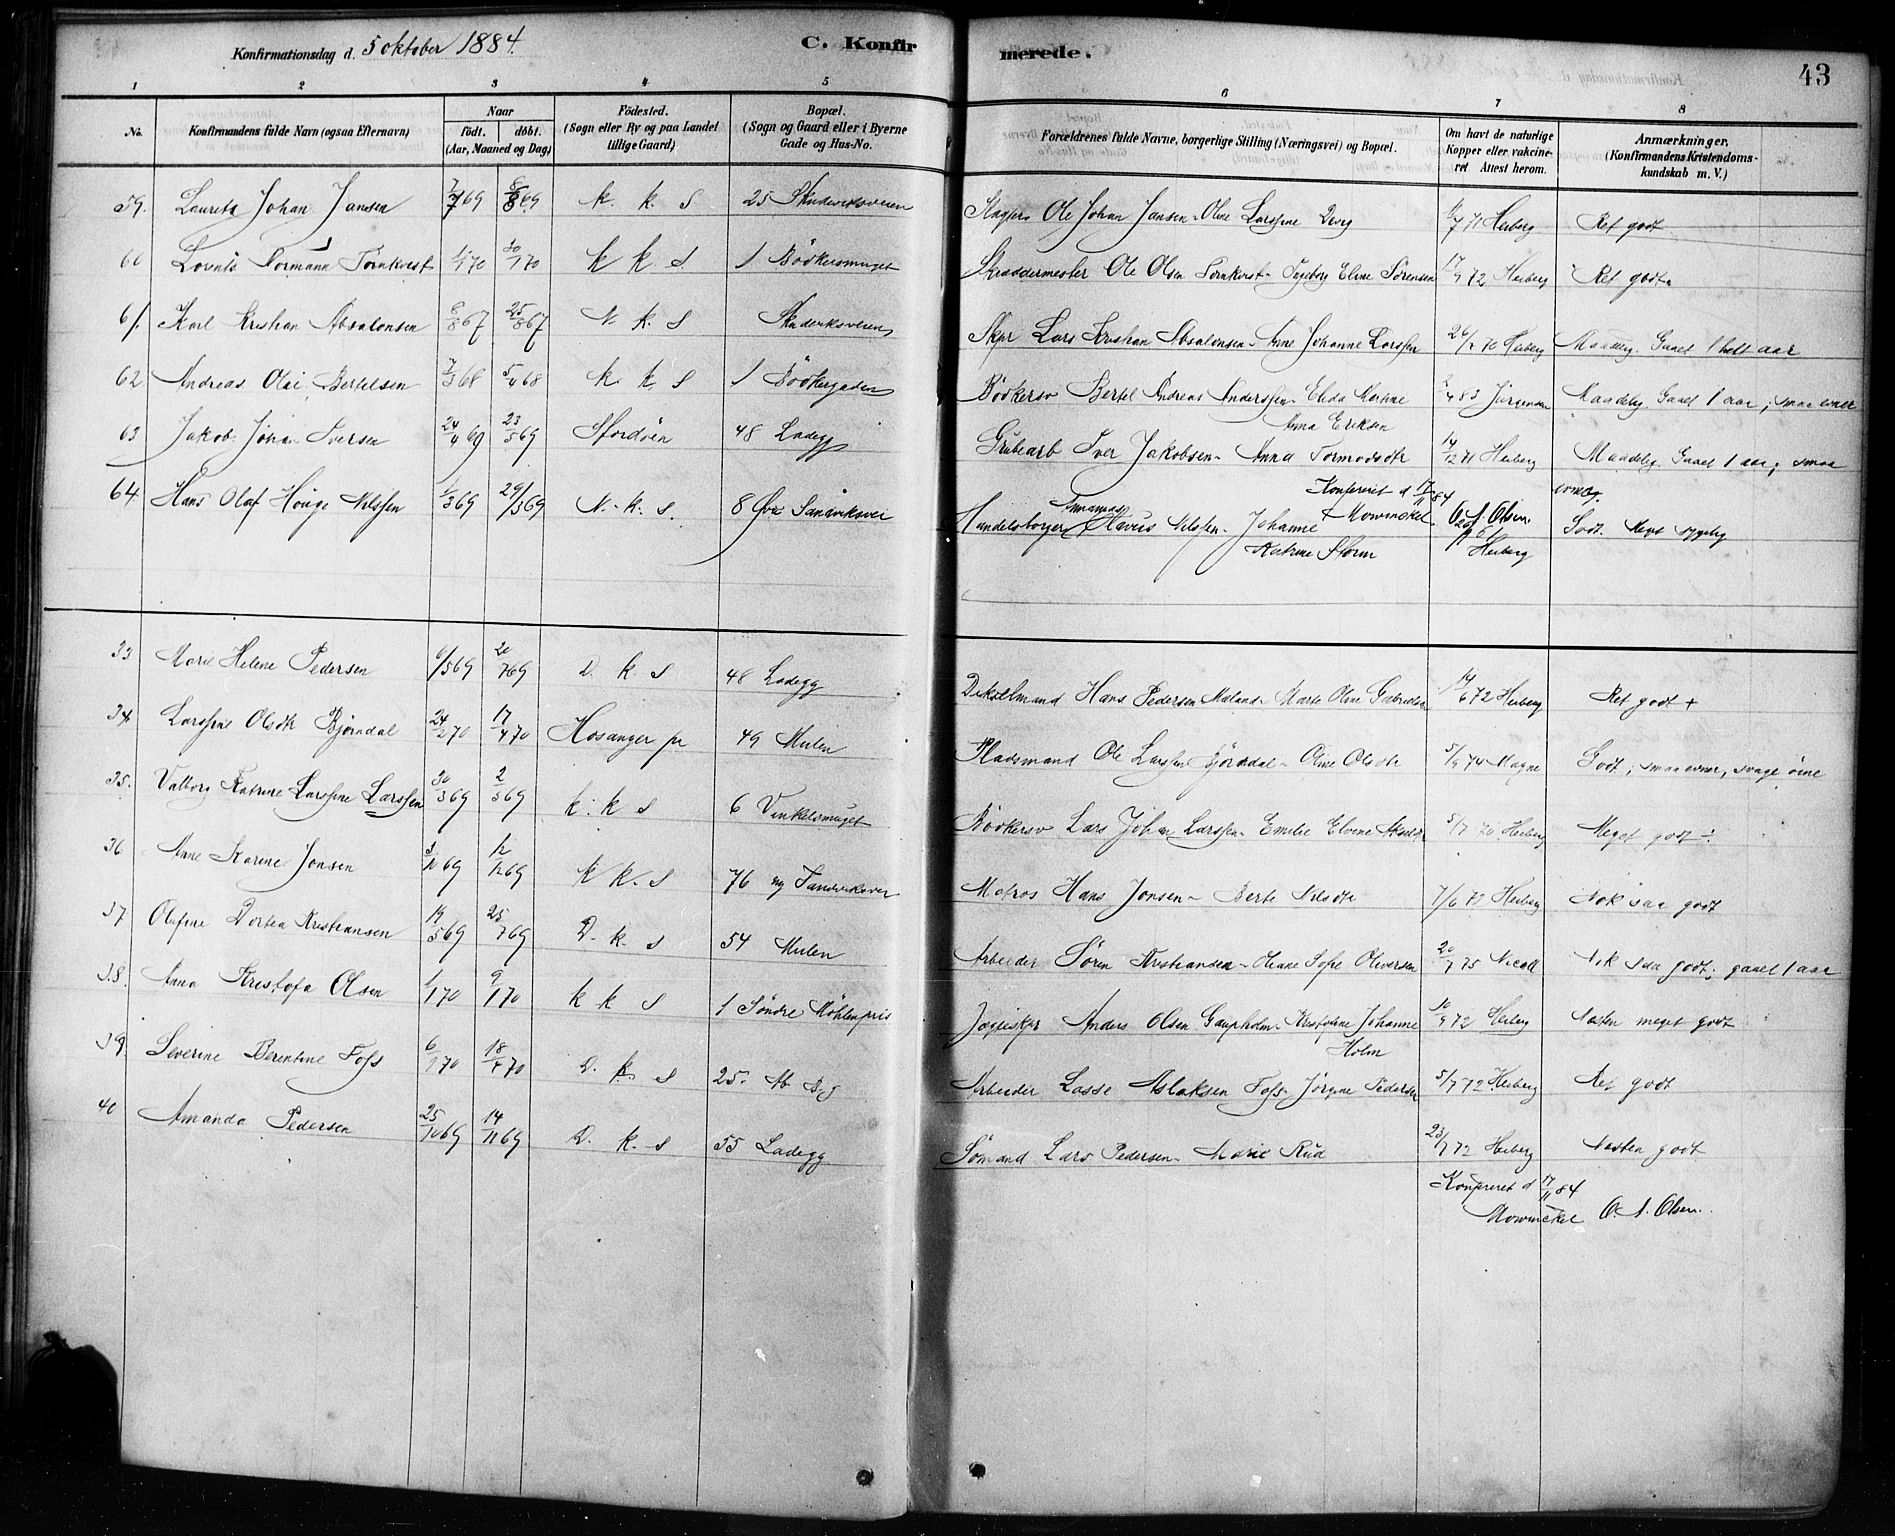 Konfirmationsdag d. 5 oktober 1884.
C. Konfirmerede.
43
1 2 3 4 5 6 7 8
No.
Konfirmandens fulde Navn (ogsaa Efternavn)
Naar
født. døbt.
(Aar, Maaned og Dag)
Fødested.
(Sogn eller By og paa Landet
tillige Gaard)
Bopæl.
(Sogn og Gaard eller i Byerne
Gade og Hus-No.
Forældrenes fulde Navne, borgerlige Stilling (Næringsvei) og Bopæl.
Om havt de naturlige
Kopper eller vakcine-
ret Attest herom.
Anmærkninger.
(Konfirmandens Kristendoms-
kundskab m. V.)
59. Laurits Johan Jansen 7/7 69 8/8 69 K. K. S 25 Skudeviksveien Ole Johan Jansen - Oline Larssine 71 Heiberg Ret godt
60 Normann Tornkvist 1/1 70 30/1 70 K K. S 1 Bödkersmuget Skræddermester Ole Olsen Tornkvist - Ingeborg Eline Sörensen 17/9 72 Heiberg Ret godt.
61. Karl Kristian Absalonsen 8/8 67 25/8 67 N. K. S Skudeviksveien Skpr Lars Kristian Absalonsen - Anne Johanne Larssen 70 Heiberg Maadelig. Gaaet 1 helt aar
62. Andreas Olai Bertelsen 7/3 68 5/4 68 K. K. S 1 Bödkergaden Bödkersv Bertel Andreas Anderssen - Elida Martine 83 Jörgensen Maadelig. Gaaet 1 aar; smaa evner
Anna Eriksen
63 Jakob Johan Iversen 24/4 69 23/5 69 48 Ladegg Grubearb Iver Jakobsen - Anna Tormodsdtr 14/12 71 Heiberg Maadelig. Gaaet 1 aar; smaa
evner.
Konfireret d 17/11 84
Mowinckel O. A. Olsen
64. Hans Olaf Houge Nilssen 1/3 69 29/3 69 N. K. S. 8 Øvre Sandviksvei Handelsborger Olavus Nilssen - Johanne
Katrine Storm Heiberg Godt. Meget sygelig
33 Marie Helene Pedersen 6/5 69 20/7 69 D. K. S 48 Ladegg Hans Pedersen Maland - Marte Oline Gabrielsen 14/6 72 Heiberg Ret godt +
34. Larssine Olsdtr Björndal 24/2 70 17/4 70 Hosanger pr 49 Mulen Pladsmand Ole Larssen Björndal - Oline Olsdtr 5/9 74 Magne Godt; smaa evner, svage öine
35. Valborg Katrine Larssine Larssen 30/3 69 2/5 69 K. K S 6 Vinkelsmuget Bödkersv Lars Johan Larssen - Emilie Elvine 5/7 70 Heiberg Meget godt ÷
36 Anne Karine Jonsen 3/10 69 12/12 69 K K. S 76 ny Sandviksvei Matros Hans Jonsen - Berte Nilsdtr 7/6 71 Heiberg Nok saa godt
37 Olufine Dortea Kristiansen 19/5 69 25/7 69 D. K. S 54 Mulen Arbeider Sören Kristiansen - Oliane Sofie Oliversen 20/7 75 Nicoll Nok saa godt; gaaet 1 aar
38. Anna Kristofa Olsen 1/1 70 9/1 70 K K S 1 Söndre Möhlenpris Jægtskpr Anders Olsen Gaupholm - Kristofine Johanne 10/9 72 Heiberg Næsten meget godt
Holm
39. Severine Berentine Foss 6/1 70 18/4 70 D. K. S 25. Arbeider Lasse Aslaksen Foss - Jörgine Pedersen 5/7 72 Heiberg Ret godt
40 Amanda Pedersen 25/10 69 14/11 69 D. K. S 55 Ladegg Sömand Lars Pedersen - Marie Rud 23/7 72 Heiberg Næsten godt
Konfireret d 17/11 84
Mowinckel O. A. Olsen.